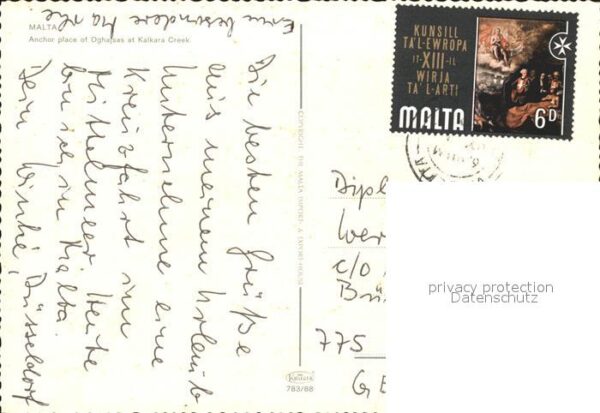 MALTA
Anchor place of Dghajsas at Kalkara Creek.
Eine besondere Marke
Die besten Grüße
aus meinem Urlaub
Unternehme eine
Kreuzfahrt im
Mittelmeer. Heute
bin ich in Malta.
Dein Düsseldorf
COPYRIGHT THE MALTA IMPORT & EXPORT HOUSE
Kalkara
783/88
KUNSILL
TA'L-EWROPA
IT-XIII-IL
WIRJA
TA'L-ARTI
MALTA 6D
Dipl
Wer
c/o
Brü
775
GE
privacy protection
Datenschutz